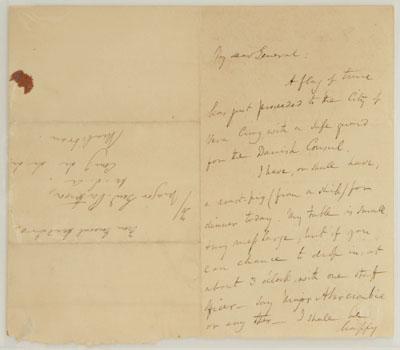 My dear General:
A flag of truce
has just proceeded to the City of
Vera Cruz, with a safe guard
for the Danish Consul.
I have, or shall have,
a roast-pig (from a ship) for
dinner today. My table is small
my mess large, but if you
can chance to drop in, at
about 3 o'clock, with one staff
officer — say Major Abercrombie
or any other — I shall be
happy
From General
Major Genl. Patterson